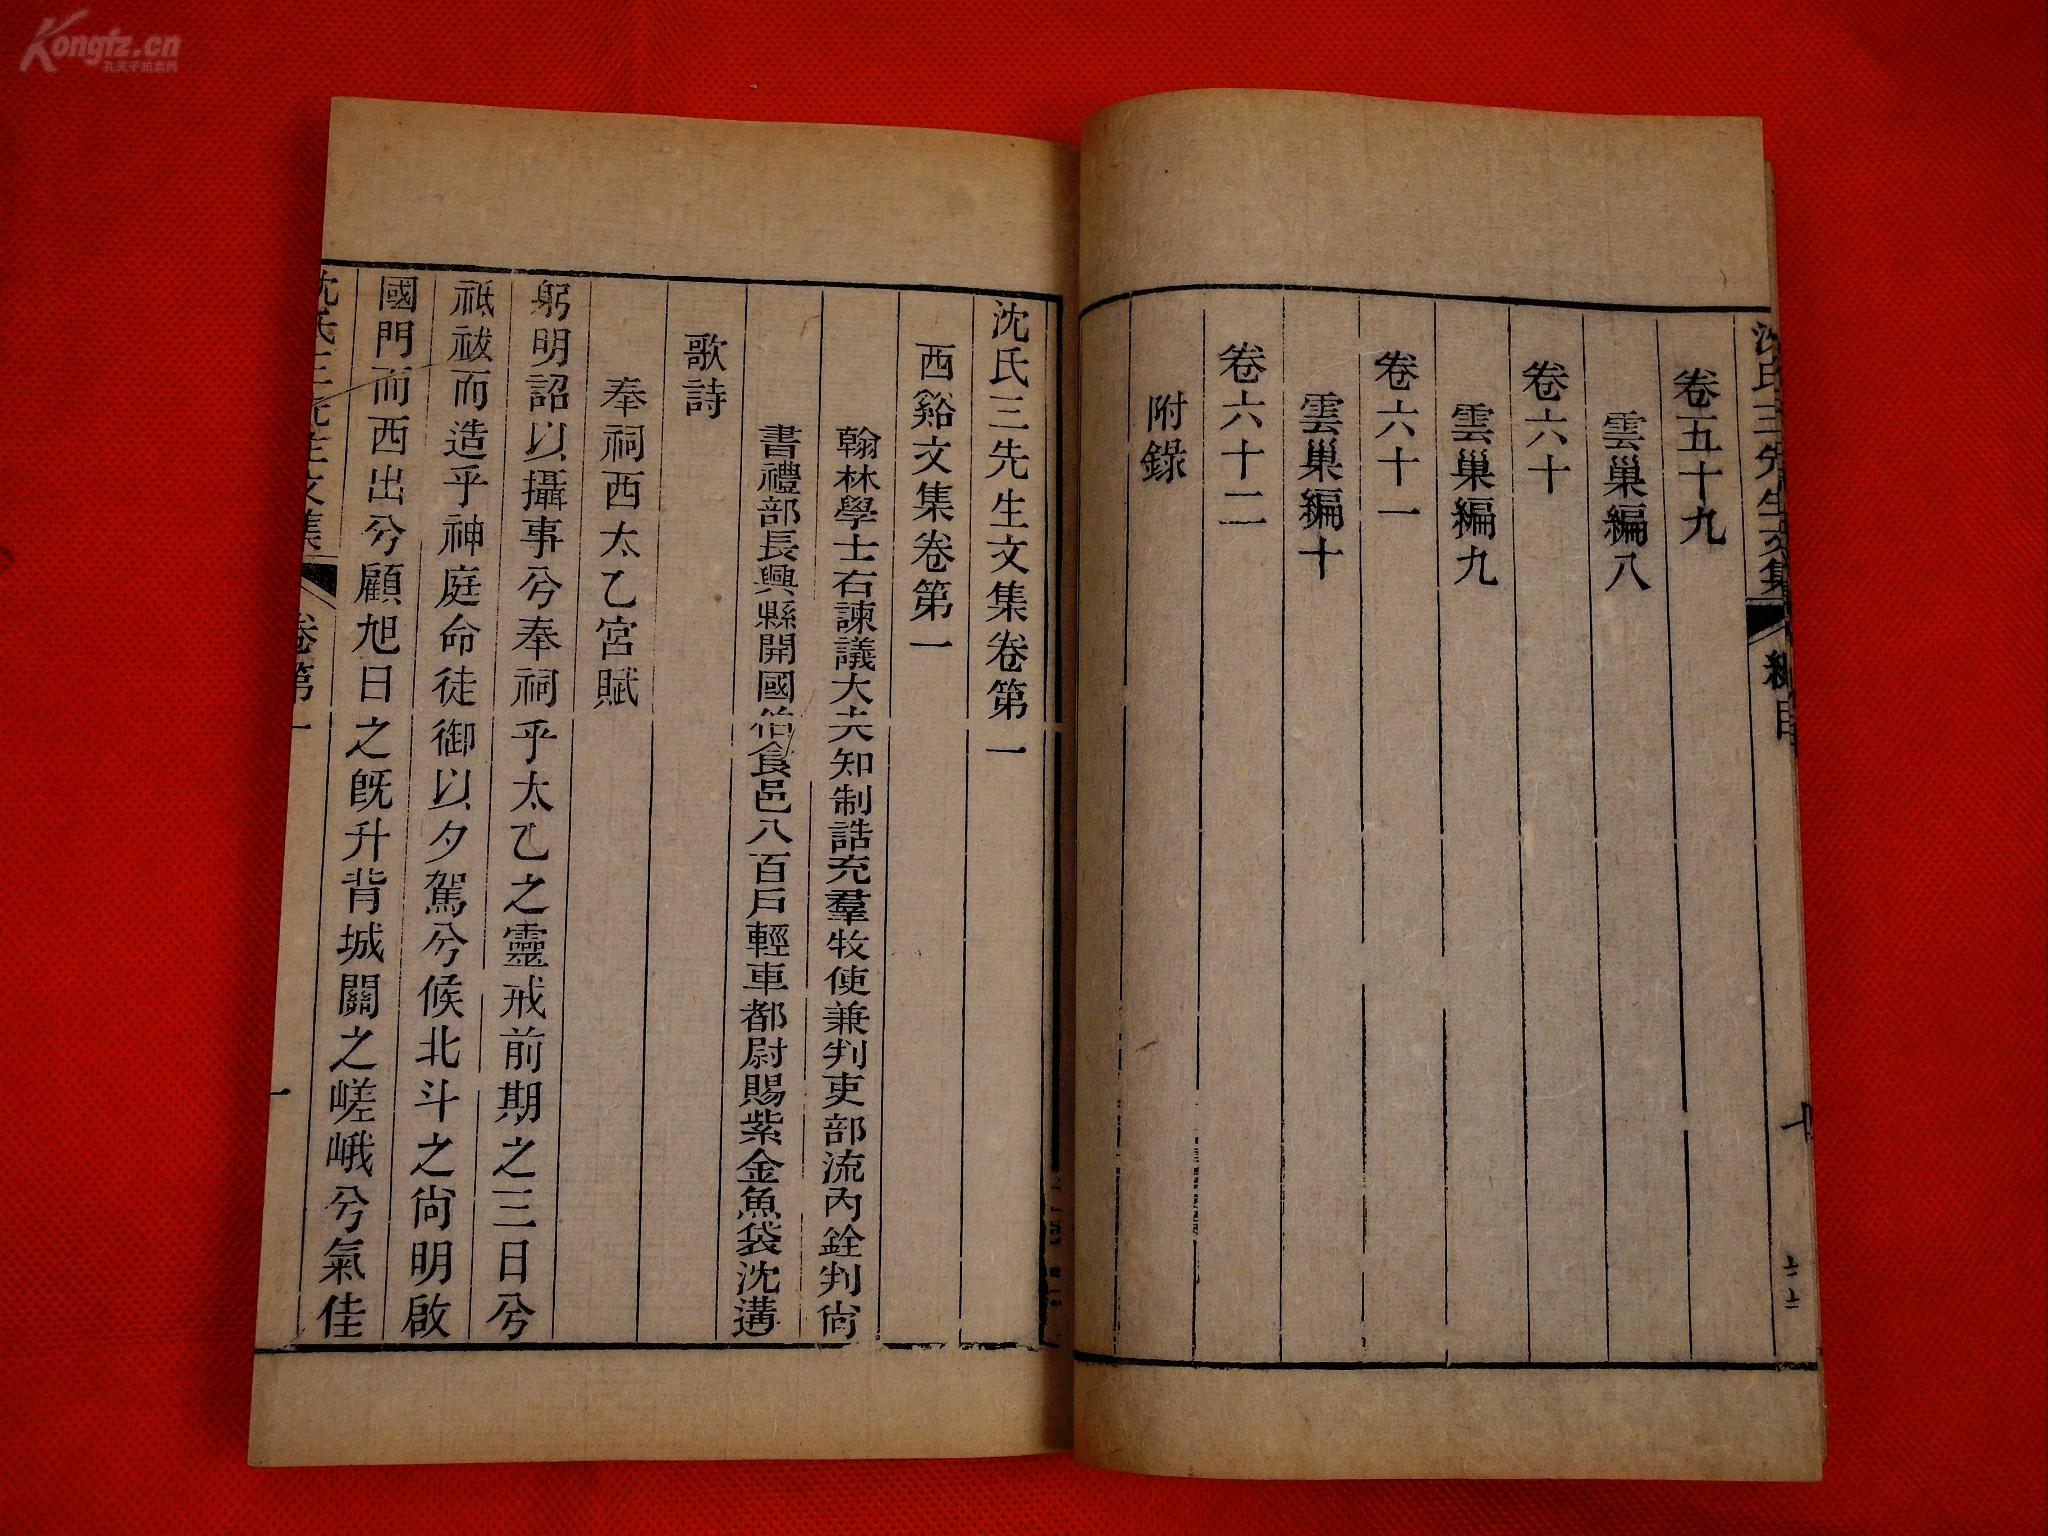 Kongfz.cn
孔夫子拍卖网
沈氏三先生文集
目
十
卷五十九
雲巢編八
卷六十
雲巢編九
卷六十一
雲巢編十
卷六十二
附錄
沈氏三先生文集卷第一
西谿文集卷第一
翰林學士右諫議大夫知制誥充羣牧使兼判吏部流內銓判尚
書禮部長興縣開國伯食邑八百戶輕車都尉賜紫金魚袋沈遘
歌詩
奉祠西太乙宮賦
躬明詔以攝事兮奉祠乎太乙之靈戒前期之三日兮
祗祓而造乎神庭命徒御以夕駕兮候北斗之尚明啟
國門而西出兮顧旭日之旣升背城闕之嵯峨兮氣佳
沈氏三先生文集
卷第一
一